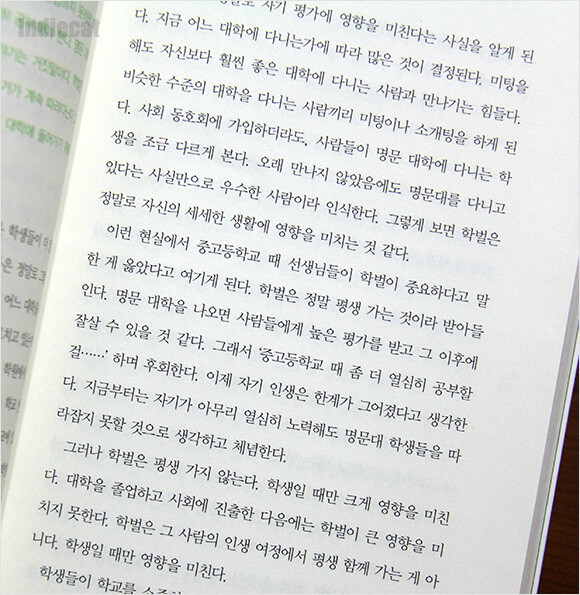 indiecat
로 자기 평가에 영향을 미친다는 사실을 알게 된
다. 지금 어느 대학에 다니는가에 따라 많은 것이 결정된다. 미팅을
해도 자신보다 훨씬 좋은 대학에 다니는 사람과 만나기는 힘들다.
비슷한 수준의 대학을 다니는 사람끼리 미팅이나 소개팅을 하게 된
다. 사회 동호회에 가입하더라도, 사람들이 명문 대학에 다니는 학
생을 조금 다르게 본다. 오래 만나지 않았음에도 명문대를 다니고
있다는 사실만으로 우수한 사람이라 인식한다. 그렇게 보면 학벌은
정말로 자신의 세세한 생활에 영향을 미치는 것 같다.
이런 현실에서 중고등학교 때 선생님들이 학벌이 중요하다고 말
한 게 옳았다고 여기게 된다. 학벌은 정말 평생 가는 것이라 받아들
인다. 명문 대학을 나오면 사람들에게 높은 평가를 받고 그 이후에
잘살 수 있을 것 같다. 그래서 '중고등학교 때 좀 더 열심히 공부할
걸……' 하며 후회한다. 이제 자기 인생은 한계가 그어졌다고 생각한
다. 지금부터는 자기가 아무리 열심히 노력해도 명문대 학생들을 따
라잡지 못할 것으로 생각하고 체념한다.
그러나 학벌은 평생 가지 않는다. 학생일 때만 크게 영향을 미친
다. 대학을 졸업하고 사회에 진출한 다음에는 학벌이 큰 영향을 미
치지 못한다. 학벌은 그 사람의 인생 여정에서 평생 함께 가는 게 아
니다. 학생일 때만 영향을 미친다.
학생들이 학교를